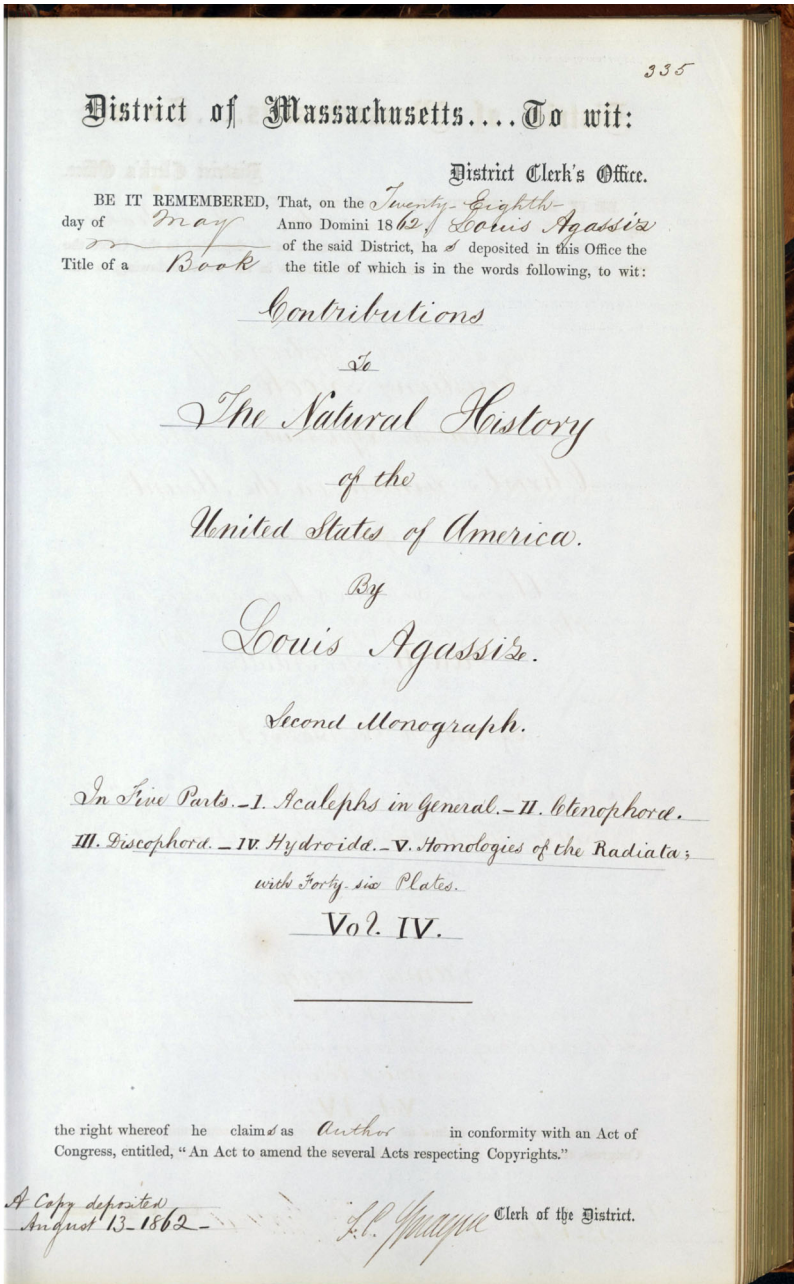 335
District of Massachusetts....To wit:
District Clerk's Office.
BE IT REMEMBERED, That, on the Twenty-Eighth
day of May Anno Domini 1862, Louis Agassiz
of the said District, has deposited in this Office the
Title of a Book the title of which is in the words following, to wit:
Contributions
To
The Natural History
of the
United States of America.
By
Louis Agassiz.
Second Monograph.
In Five Parts.–I. Acalephs in General.–II. Ctenophoræ.
III. Discophoræ.–IV. Hydroidæ.–V. Homologies of the Radiata;
with Forty-six Plates.
Vol. IV.
the right whereof he claims as Author in conformity with an Act of
Congress, entitled, "An Act to amend the several Acts respecting Copyrights."
A Copy deposited
August 13–1862–
Clerk of the District.